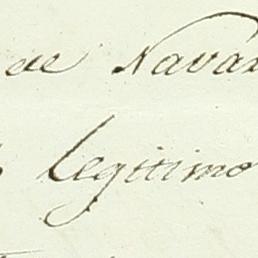 de Nava
legitimo